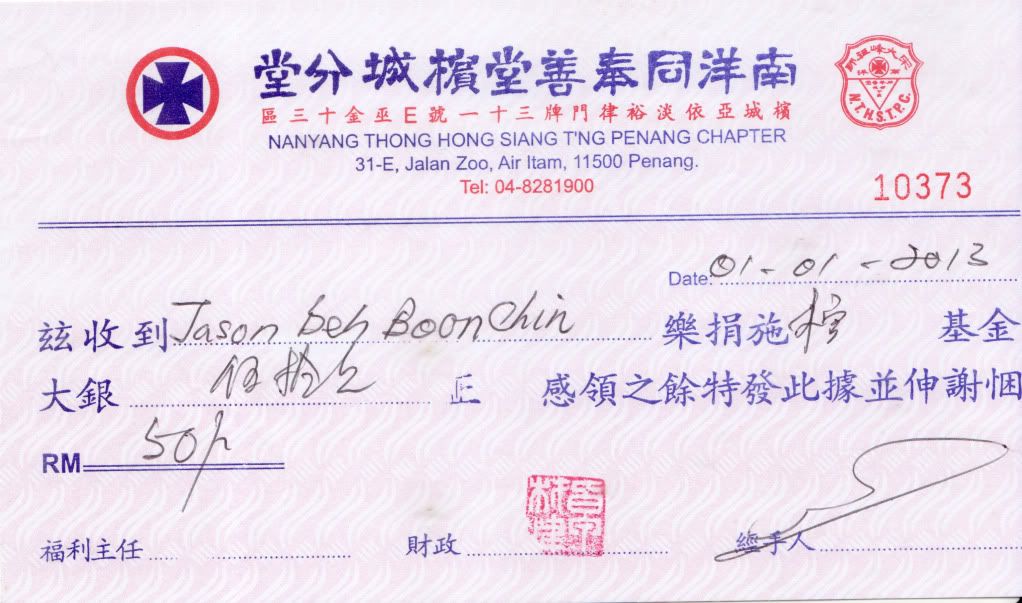 南洋同奉善堂檳城分堂
檳城亞依淡裕律門牌三十一號E巫金十三區
NANYANG THONG HONG SIANG T'NG PENANG CHAPTER
31-E, Jalan Zoo, Air Itam, 11500 Penang.
Tel: 04-8281900
宋大峰祖師
N.T.H.S.T.P.C.
10373
Date: 01-01-2013
茲收到 Jason Beh Boon Chin 樂捐施棺 基金
大銀 伍拾元 正 感領之餘特發此據並伸謝悃
RM 50/
福利主任 財政 經手人